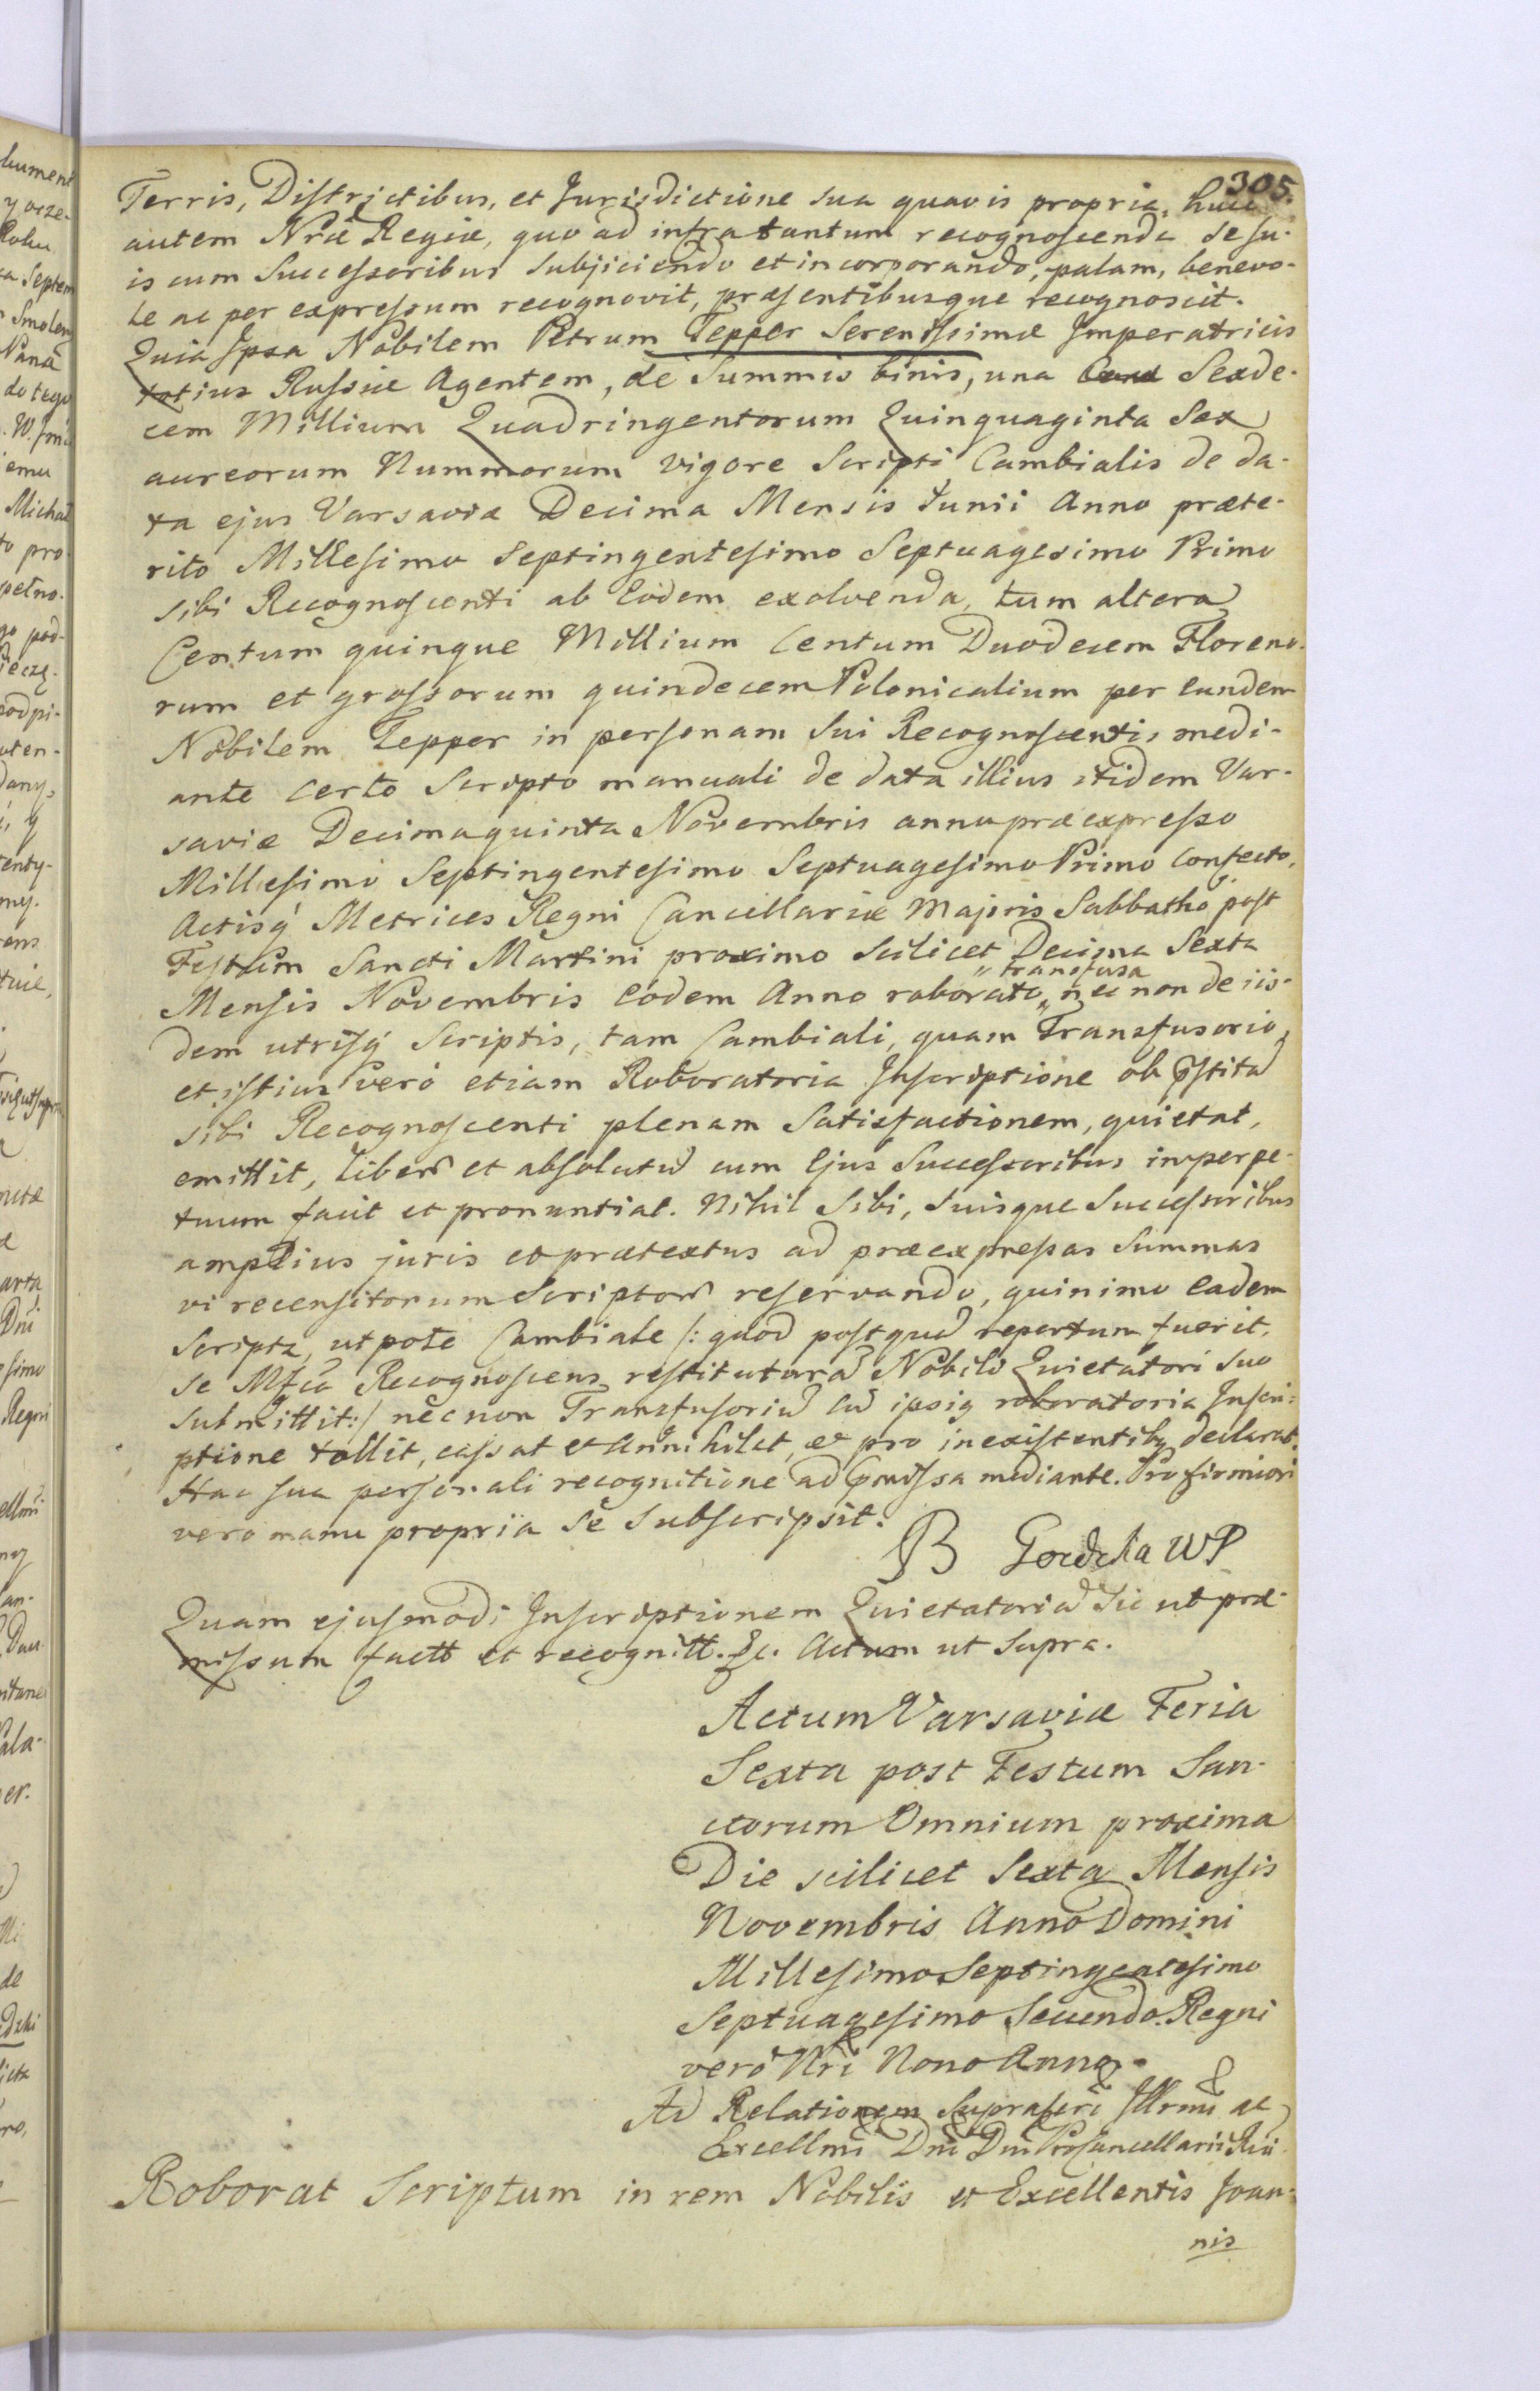 305.
Terris, Districtibus, et Jurisdictione sua quavis propria, huic
autem Nræ Regiæ, quo ad infra tantum recognoscenda se su-
is cum Successoribus subjiciendo et incorporando, palam, benevo-
le ac per expressum recognovit, præsentibusque recognoscit.
Quia Ipsa Nobilem Petrum Tepper Serenissimæ Imperatricis
totius Russiæ Agentem, de Summis binis, una Sexde-
cem Millium Quadringentorum Quinquaginta Sex
aureorum Nummorum vigore Scripti Cambialis de da-
ta ejus Varsaviæ Decima Mensis Junii Anno præte-
rito Millesimo Septingentesimo Septuagesimo Primo
sibi Recognoscenti ab Eodem exolvenda, tum altera
Centum quinque Millium Centum Duodecem Floreno-
rum et grossorum quindecem Polonicalium per eundem
Nobilem Tepper in personam sui Recognoscentis medi-
ante certo Scripto manuali de data illius itidem Var-
saviæ Decimaquinta Novembris anno præexpresso
Millesimo Septingentesimo Septuagesimo Primo confecto,
Actisq́ Metrices Regni Cancellariæ Majoris Sabbatho post
Festum Sancti Martini proximo scilicet Decima Sexta
Mensis Novembris Eodem Anno roborato, " transfusa " nec non de iis-
dem utrisq́ Scriptis, tam Cambiali, quam Transfusorio,
et istius vero etiam Roboratoria Inscriptione ob p̄stita
sibi Recognoscenti plenam Satisfactionem, quietat,
emittit, liberũ et absolutũ cum Ejus Successoribus in perpe-
tuum facit et pronuntiat. Nihil Sibi, Suisque Successoribus
amplius juris et prætextus ad præexpressas Summas
vi recensitorum Scriptorũ reservando, quinimo Eadem
Scripta, utpote Cambiale /: quod postquã repertum fuerit,
se Mfca Recognoscens restituturã Nobili Quietatori suo
submittit :/ nec non Transfusoriũ cũ ipsiq roboratoria Inscri-
ptione tollit, cassat et annihilat, et pro inexistentibq declarat.
Hac sua personali recognitione ad p̄missa mediante. Pro firmiori
vero manu propria se subscripsit.
B WP
Quam ejusmodi Inscriptionem Quietatoriã sic ut præ-
missum factt et recognitt. &c. Actum ut Supra.
Actum Varsaviæ Feria
Sexta post Festum San-
ctorum Omnium proxima
Die scilicet Sexta Mensis
Novembris Anno Domini
Millesimo Septingentesimo
Septuagesimo Secundo. Regni
vero Nri Nono Anno.
Ad Relationem Suprascri Illrmi ac
Excellmi Dni Dni ProCancellarii Rni
Roborat Scriptum in rem Nobilis et Excellentis Joan-
nis